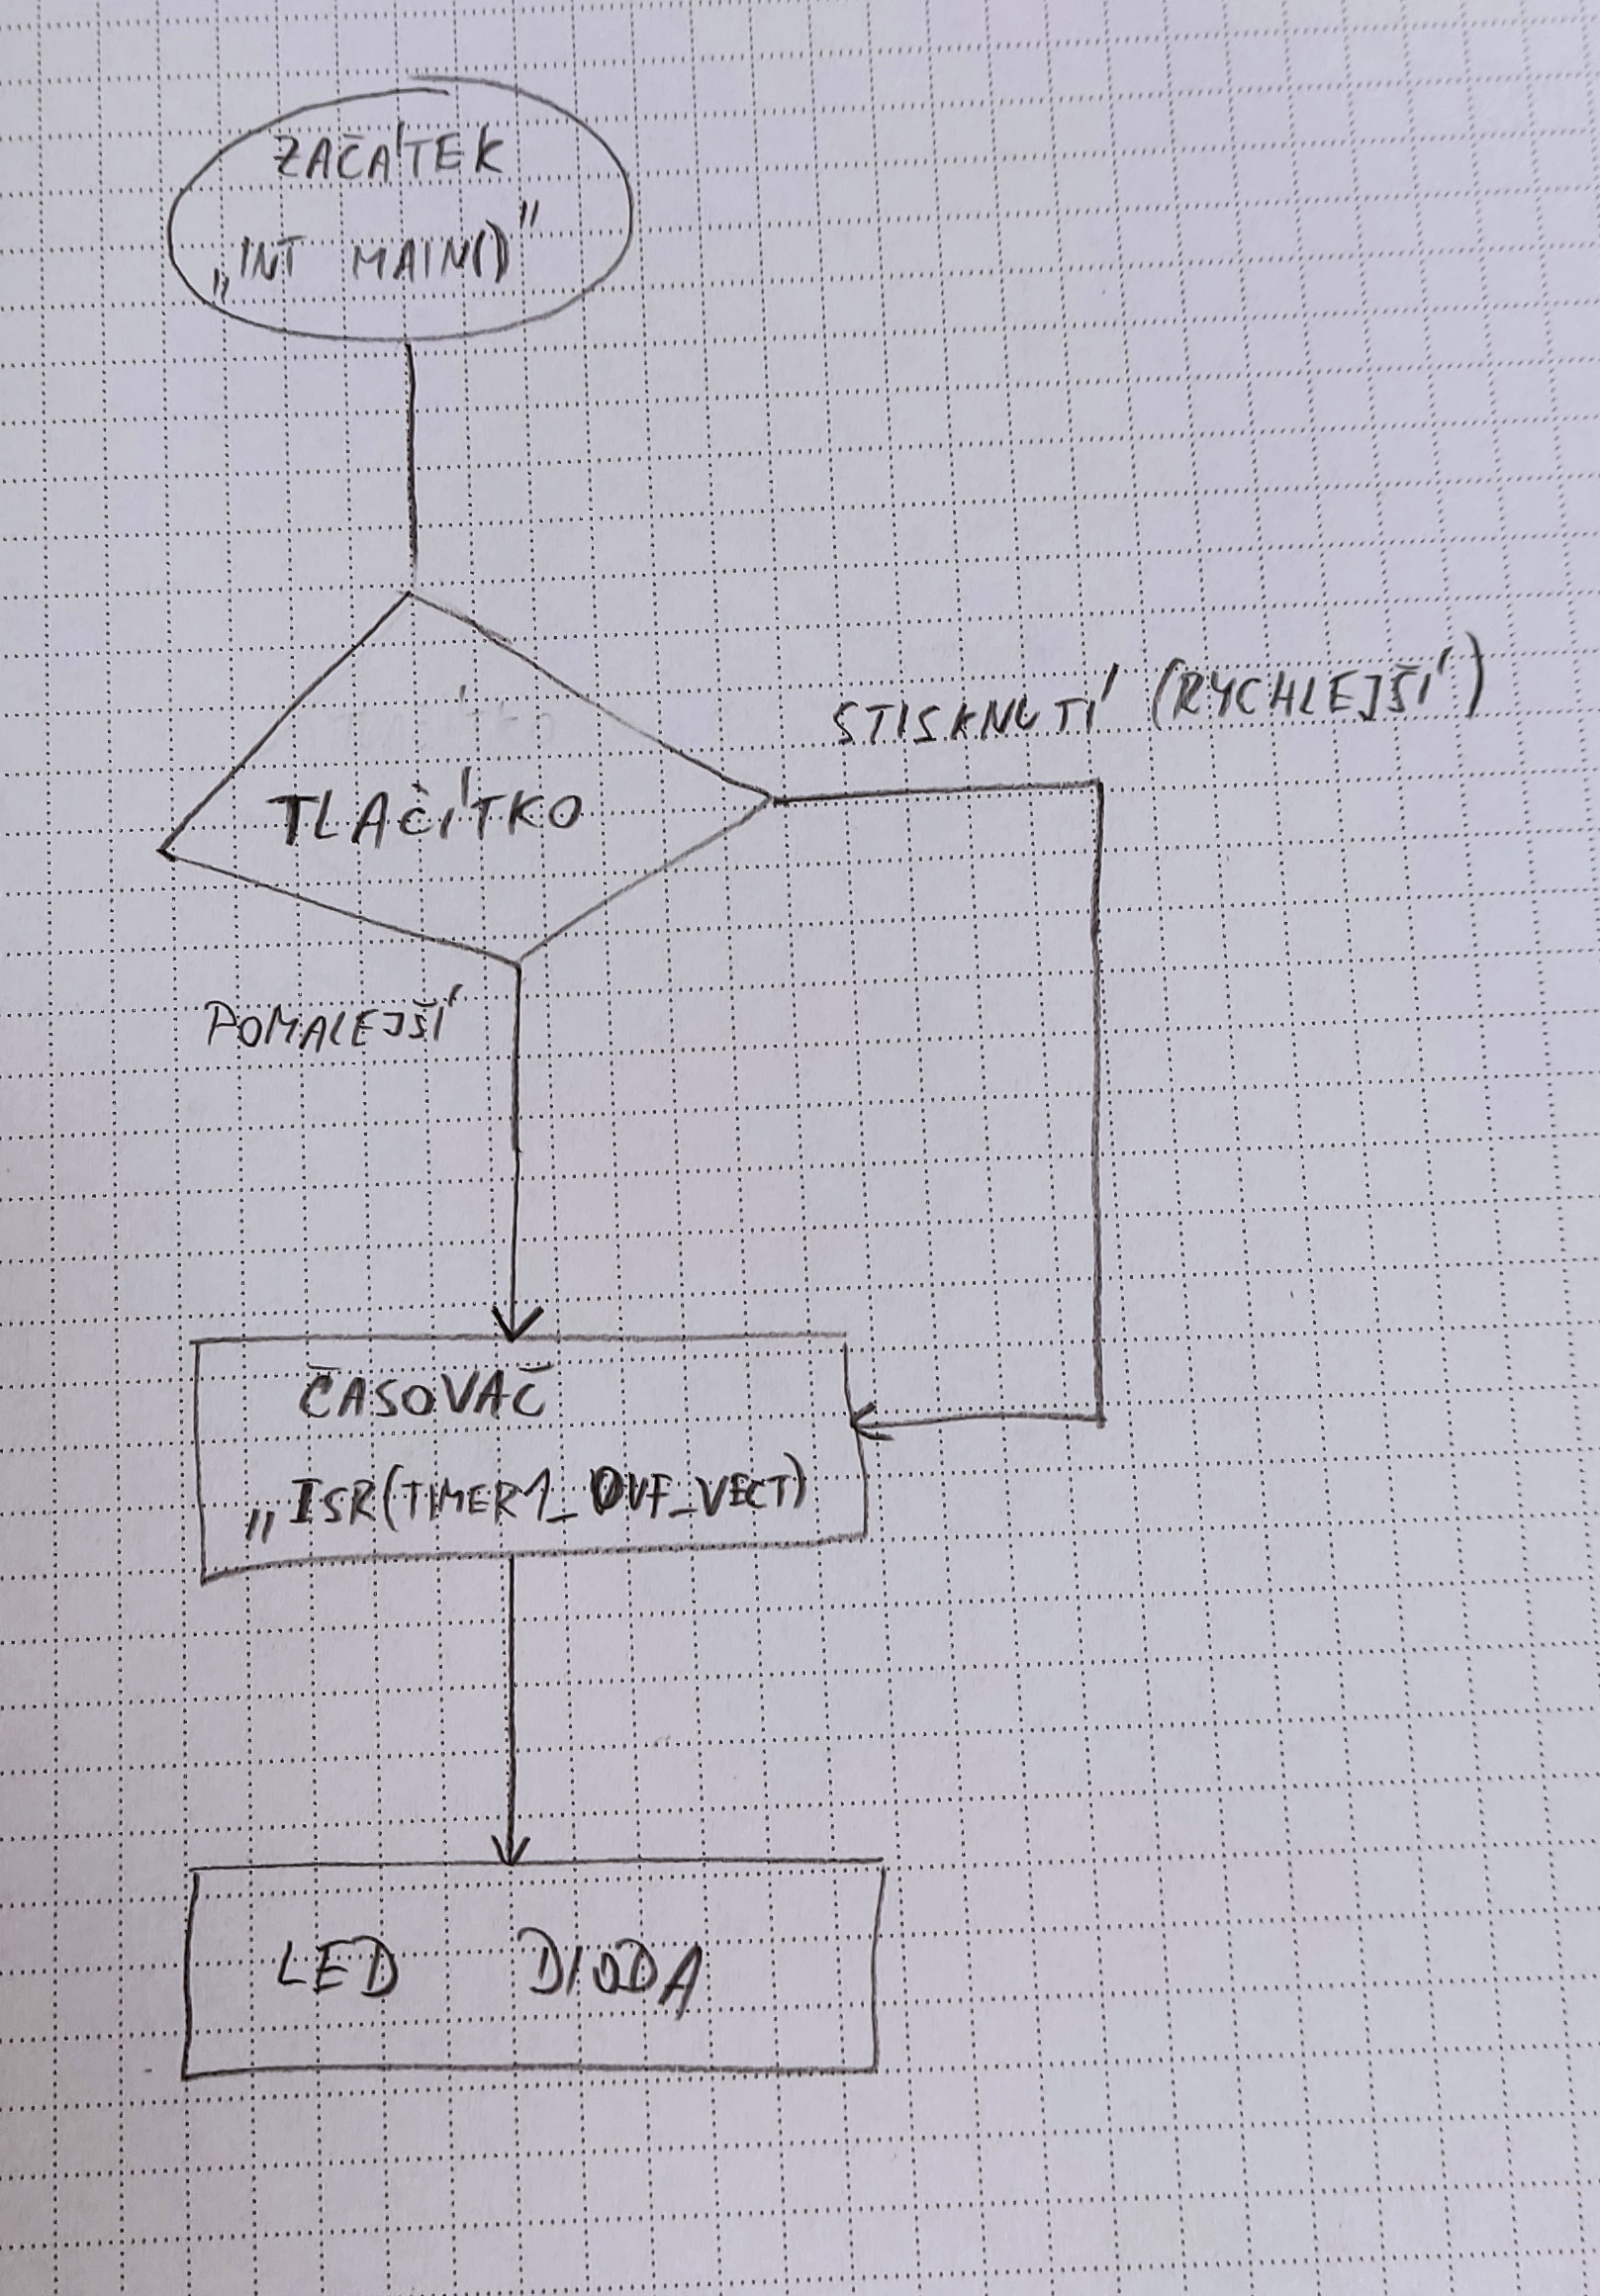 ZAČÁTEK
„INT MAIN()"
STISKNUTÍ (RYCHLEJŠÍ)
TLAČÍTKO
POMALEJŠÍ
ČASOVAČ
„ISR(TIMER1_OVF_VECT)
LED DIODA